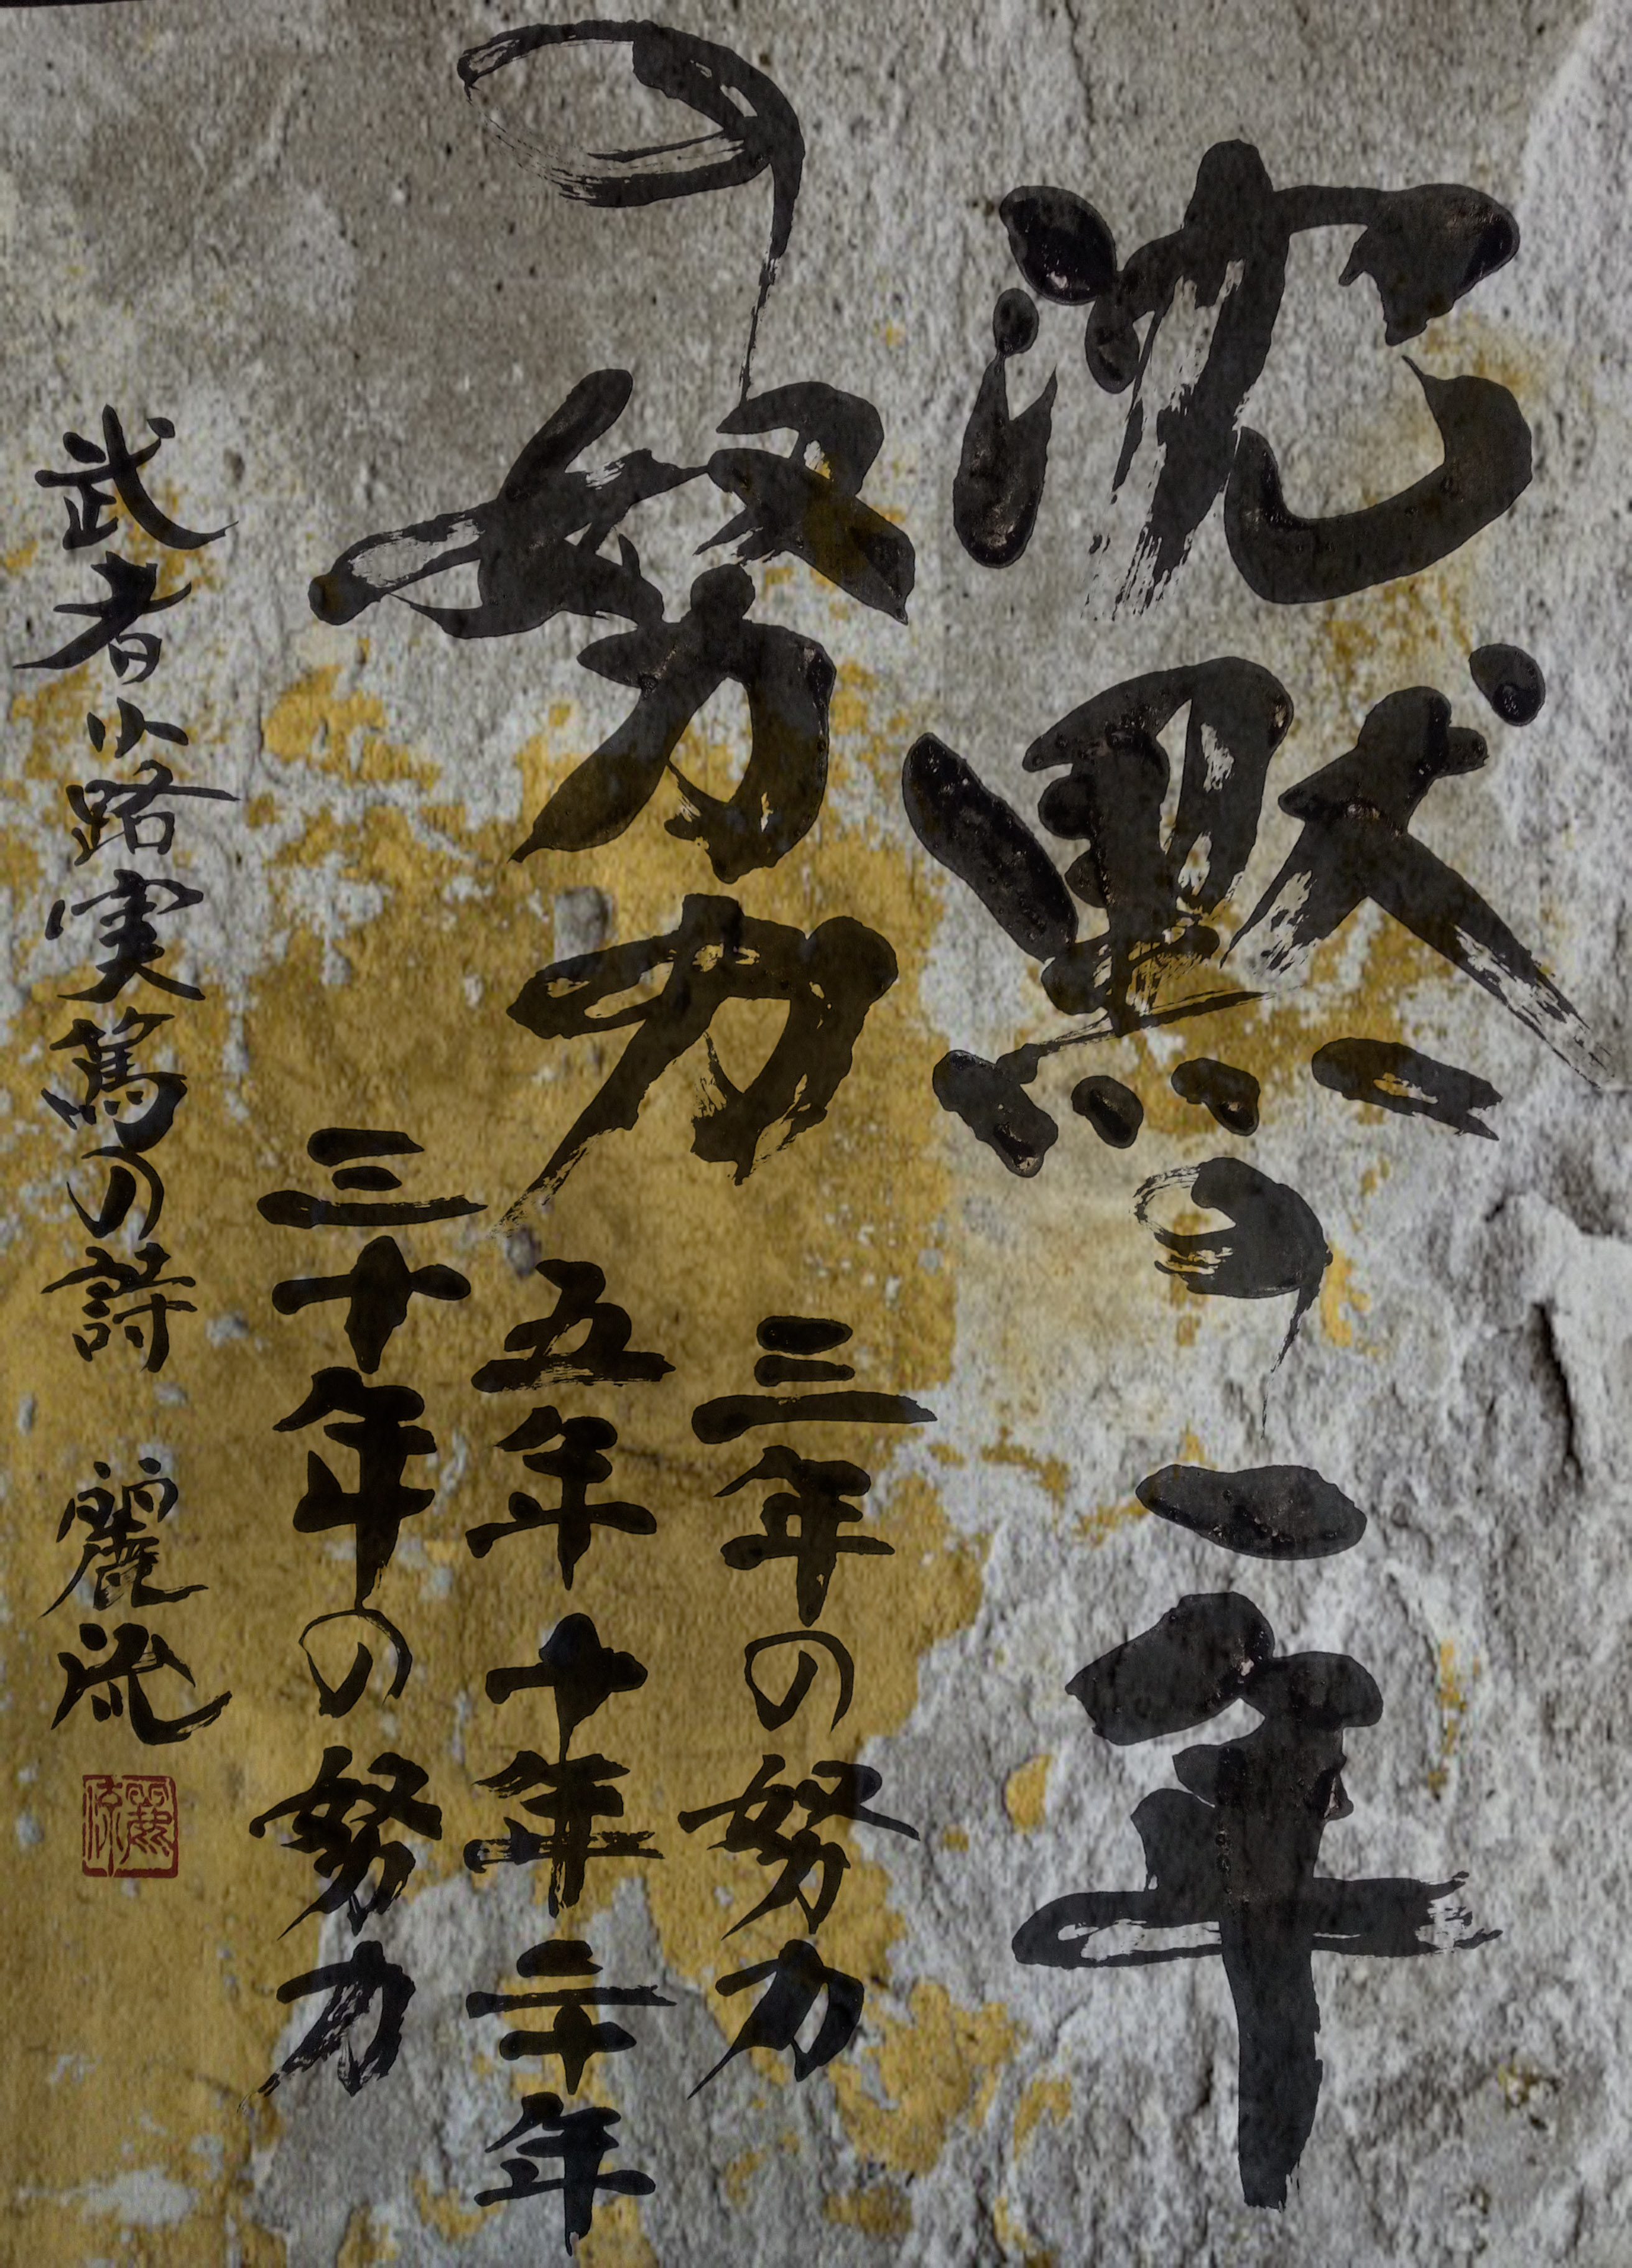 沈黙の一年
の努力
三年の努力
五年十年二十年
三十年の努力
武者小路実篤の詩 麗流
麗流